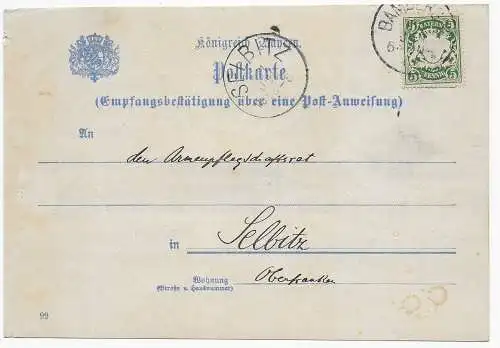 Königreich Bayern.
Postkarte
(Empfangsbestätigung über eine Post-Anweisung)
SELBITZ
BAYERN
5 5
PFENNIG
An
den Armenpflegschaftsrat
in Selbitz
Wohnung
(Straße u. Hausnummer)
Oberfranken
99